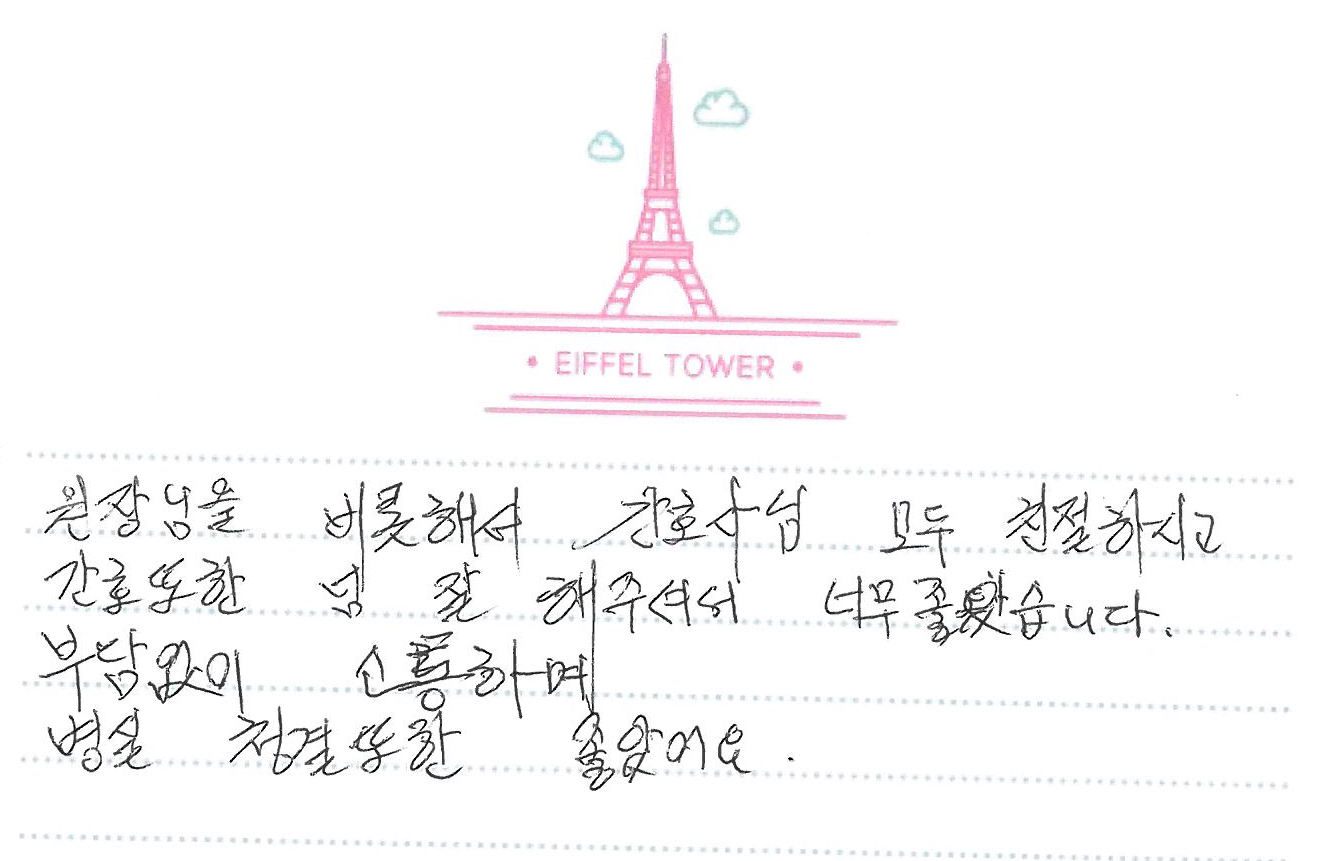 EIFFEL TOWER
원장님을 비롯해서 간호사님 모두 친절하시고
간호또한 넘 잘 해주셔서 너무 좋았습니다.
부담없이 소통하며
병실 청결또한 좋았어요.